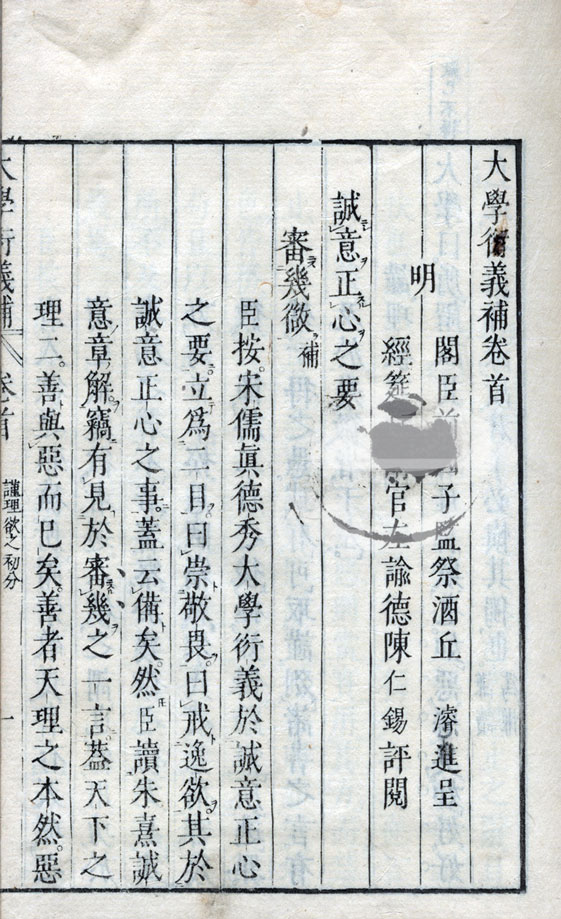 大學衍義補卷首
明
閣臣前 子監祭酒丘濬進呈
經筵 官左諭德陳仁錫評閱
誠意正心之要
審幾微補
臣按宋儒眞德秀大學衍義於誠意正心
之要立爲二目曰崇敬畏曰戒逸欲其於
誠意正心之事蓋云備矣然臣讀朱熹誠
意章解竊有見於審幾之一言蓋天下之
理二善與惡而已矣善者天理之本然惡
大學衍義補 卷首 謹理欲之初分 一